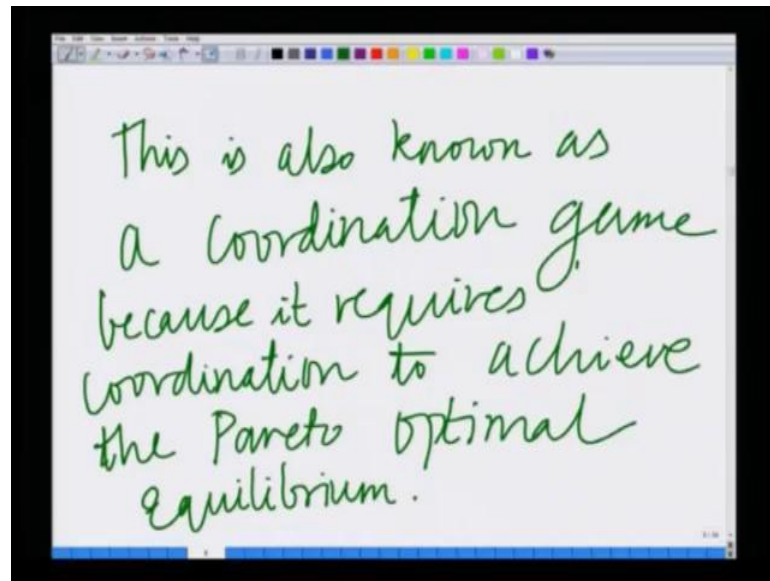 This is also known as
a coordination game
because it requires
coordination to achieve
the Pareto optimal
Equilibrium.